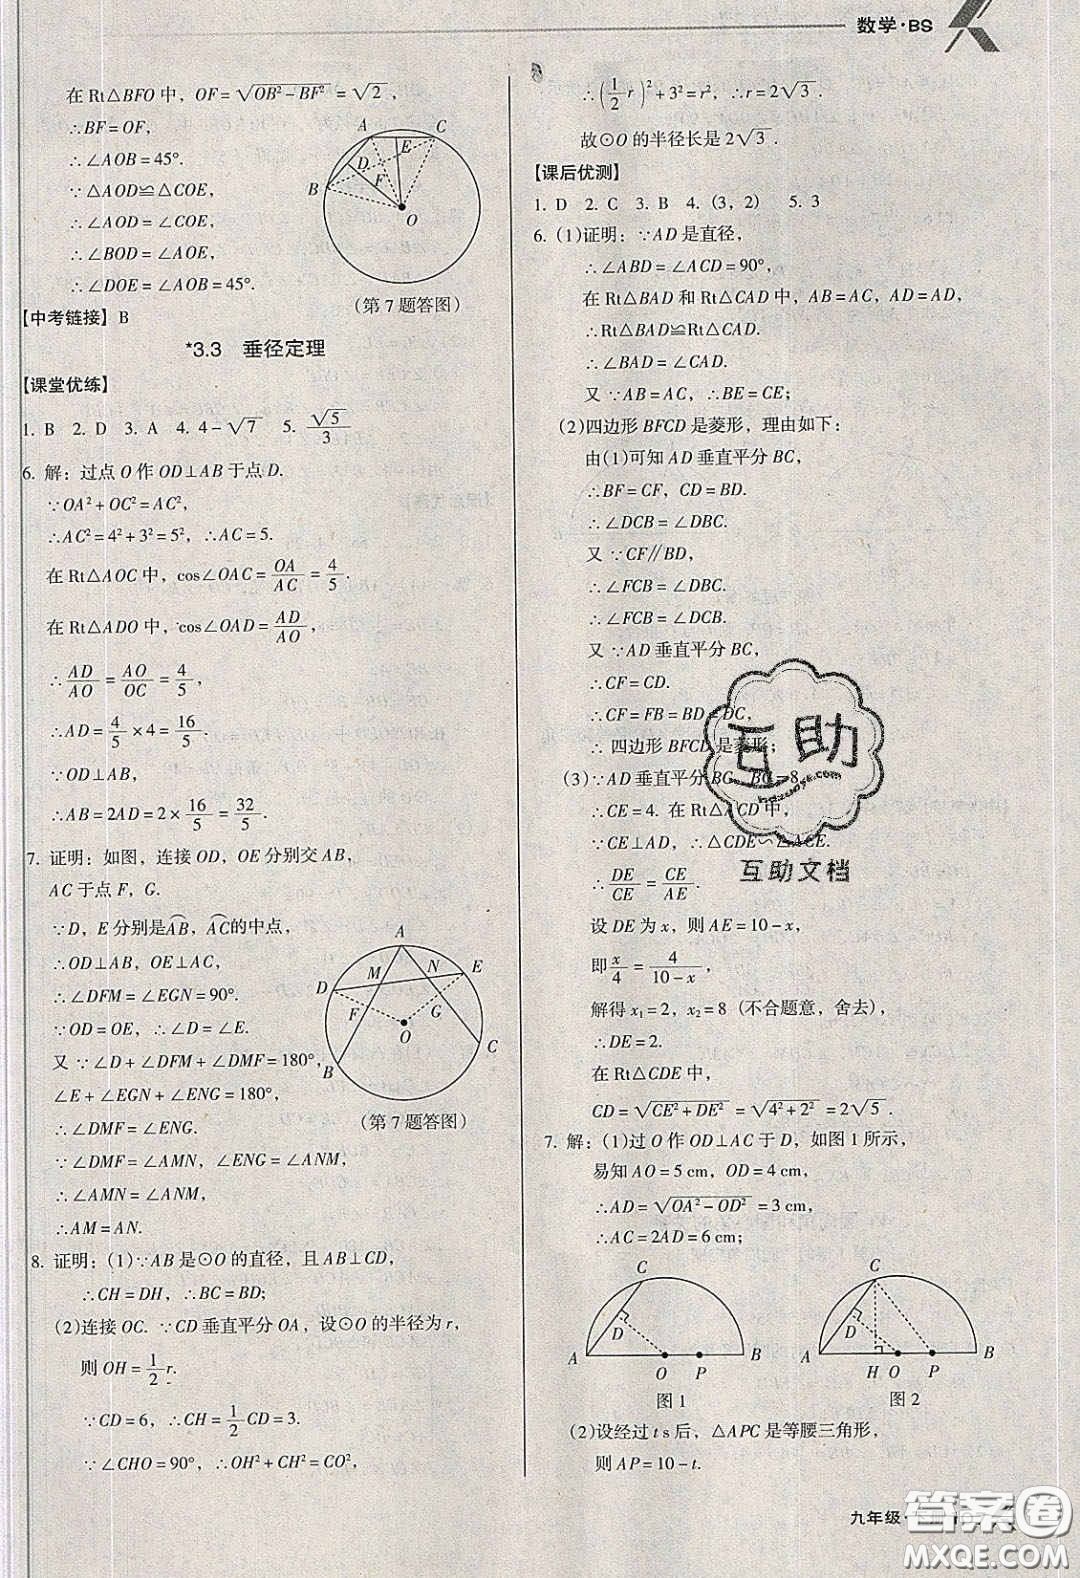 数学·BS
在Rt△BFO中，OF=√(OB²-BF²)=√2，
∴BF=OF，
∴∠AOB=45°.
∵△AOD≌△COE，
∴∠AOD=∠COE，
∴∠BOD=∠AOE，
∴∠DOE=∠AOB=45°.
A C
E
D
F
B
O
(第7题答图)
【中考链接】B
*3.3 垂径定理
【课堂优练】
1. B 2. D 3. A 4. 4-√7 5. √5/3
6. 解：过点O作OD⊥AB于点D.
∵OA²+OC²=AC²，
∴AC²=4²+3²=5²，∴AC=5.
在Rt△AOC中，cos∠OAC=OA/AC=4/5.
在Rt△ADO中，cos∠OAD=AD/AO，
∴AD/AO=AO/OC=4/5，
∴AD=4/5×4=16/5，
∵OD⊥AB，
∴AB=2AD=2×16/5=32/5.
7. 证明：如图，连接OD，OE分别交AB，
AC于点F，G.
∵D，E分别是A͡B，A͡C的中点，
∴OD⊥AB，OE⊥AC，
∴∠DFM=∠EGN=90°.
∵OD=OE，∴∠D=∠E.
又∵∠D+∠DFM+∠DMF=180°，
∠E+∠EGN+∠ENG=180°，
∴∠DMF=∠ENG.
∵∠DMF=∠AMN，∠ENG=∠ANM，
∴∠AMN=∠ANM，
∴AM=AN.
A
M N E
D
F G
O
B C
(第7题答图)
8. 证明：(1)∵AB是⊙O的直径，且AB⊥CD，
∴CH=DH，∴BC=BD；
(2)连接OC.∵CD垂直平分OA，设⊙O的半径为r，
则OH=1/2r.
∵CD=6，∴CH=1/2CD=3.
∵∠CHO=90°，∴OH²+CH²=CO²，
∴(1/2r)²+3²=r²，∴r=2√3.
故⊙O的半径长是2√3.
【课后优测】
1. D 2. C 3. B 4. (3，2) 5. 3
6. (1)证明：∵AD是直径，
∴∠ABD=∠ACD=90°，
在Rt△BAD和Rt△CAD中，AB=AC，AD=AD，
∴Rt△BAD≌Rt△CAD，
∴∠BAD=∠CAD，
又∵AB=AC，∴BE=CE；
(2)四边形BFCD是菱形，理由如下：
由(1)可知AD垂直平分BC，
∴BF=CF，CD=BD，
∴∠DCB=∠DBC.
又∵CF∥BD，
∴∠FCB=∠DBC，
∴∠FCB=∠DCB.
又∵AD垂直平分BC，
∴CF=CD.
∴CF=FB=BD=DC，
∴四边形BFCD是菱形；
(3)∵AD垂直平分BC，BC=8，
∴CE=4. 在Rt△ACD中，
∵CE⊥AD，∴△CDE∽△ACE.
∴DE/CE=CE/AE.
设DE为x，则AE=10-x，
即x/4=4/(10-x)，
解得x₁=2，x₂=8（不合题意，舍去），
∴DE=2.
在Rt△CDE中，
CD=√(CE²+DE²)=√(4²+2²)=2√5.
7. 解：(1)过O作OD⊥AC于D，如图1所示，
易知AO=5 cm，OD=4 cm，
∴AD=√(OA²-OD²)=3 cm，
∴AC=2AD=6 cm.
C
D
A O P B
图1
C
D
A H O P B
图2
(2)设经过t s后，△APC是等腰三角形，
则AP=10-t.
互助
huzhuwang.com
互助文档
九年级·
答案圈
MXQE.COM